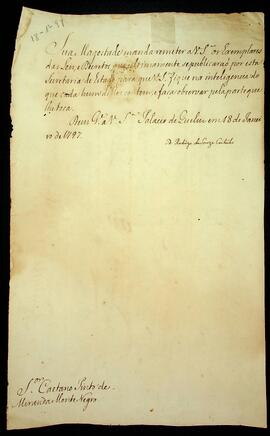 18-1-97
Sua Magestade manda remeter a V S.ª os Exemplares
das Leis, e Decretos, que ultimamente se publicaraõ por esta
Secretaria de Estado, para que V. S.ª fique na intelligencia do
que cada hum delles contem, e faça observar pela parte que
lhe toca.
Deos G.e a V. S.ª Palacio de Queluz em 18 de Janei
ro de 1797.
D. Rodrigo de Souza Coutinho
S.or Caetano Pinto de
Miranda Monte Negro